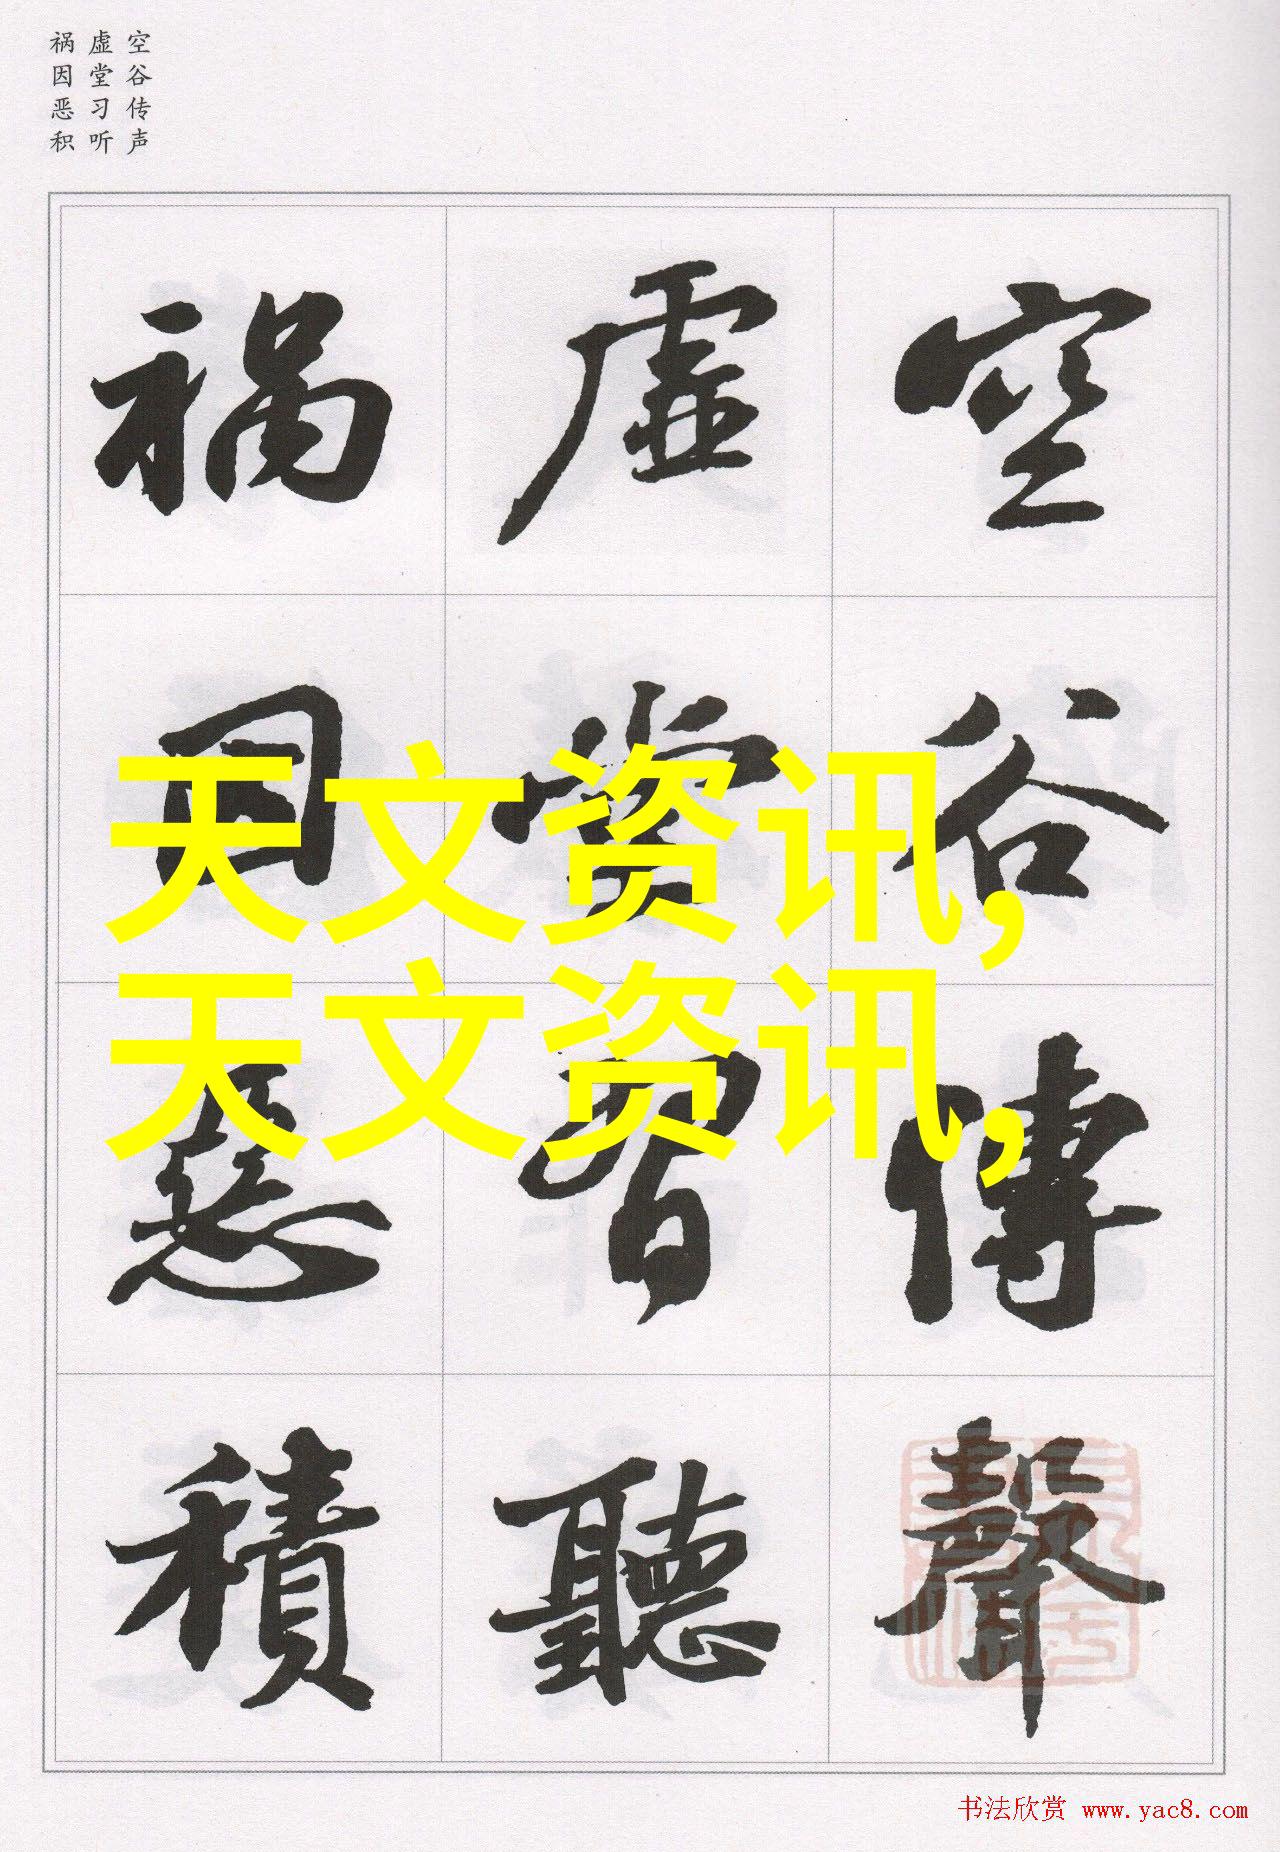 空谷传声
虚堂习听
祸因恶积
空谷傳聲
虛堂習聽
禍因惡積
天文资讯,
天文资讯,
书法欣赏 www.yac8.com